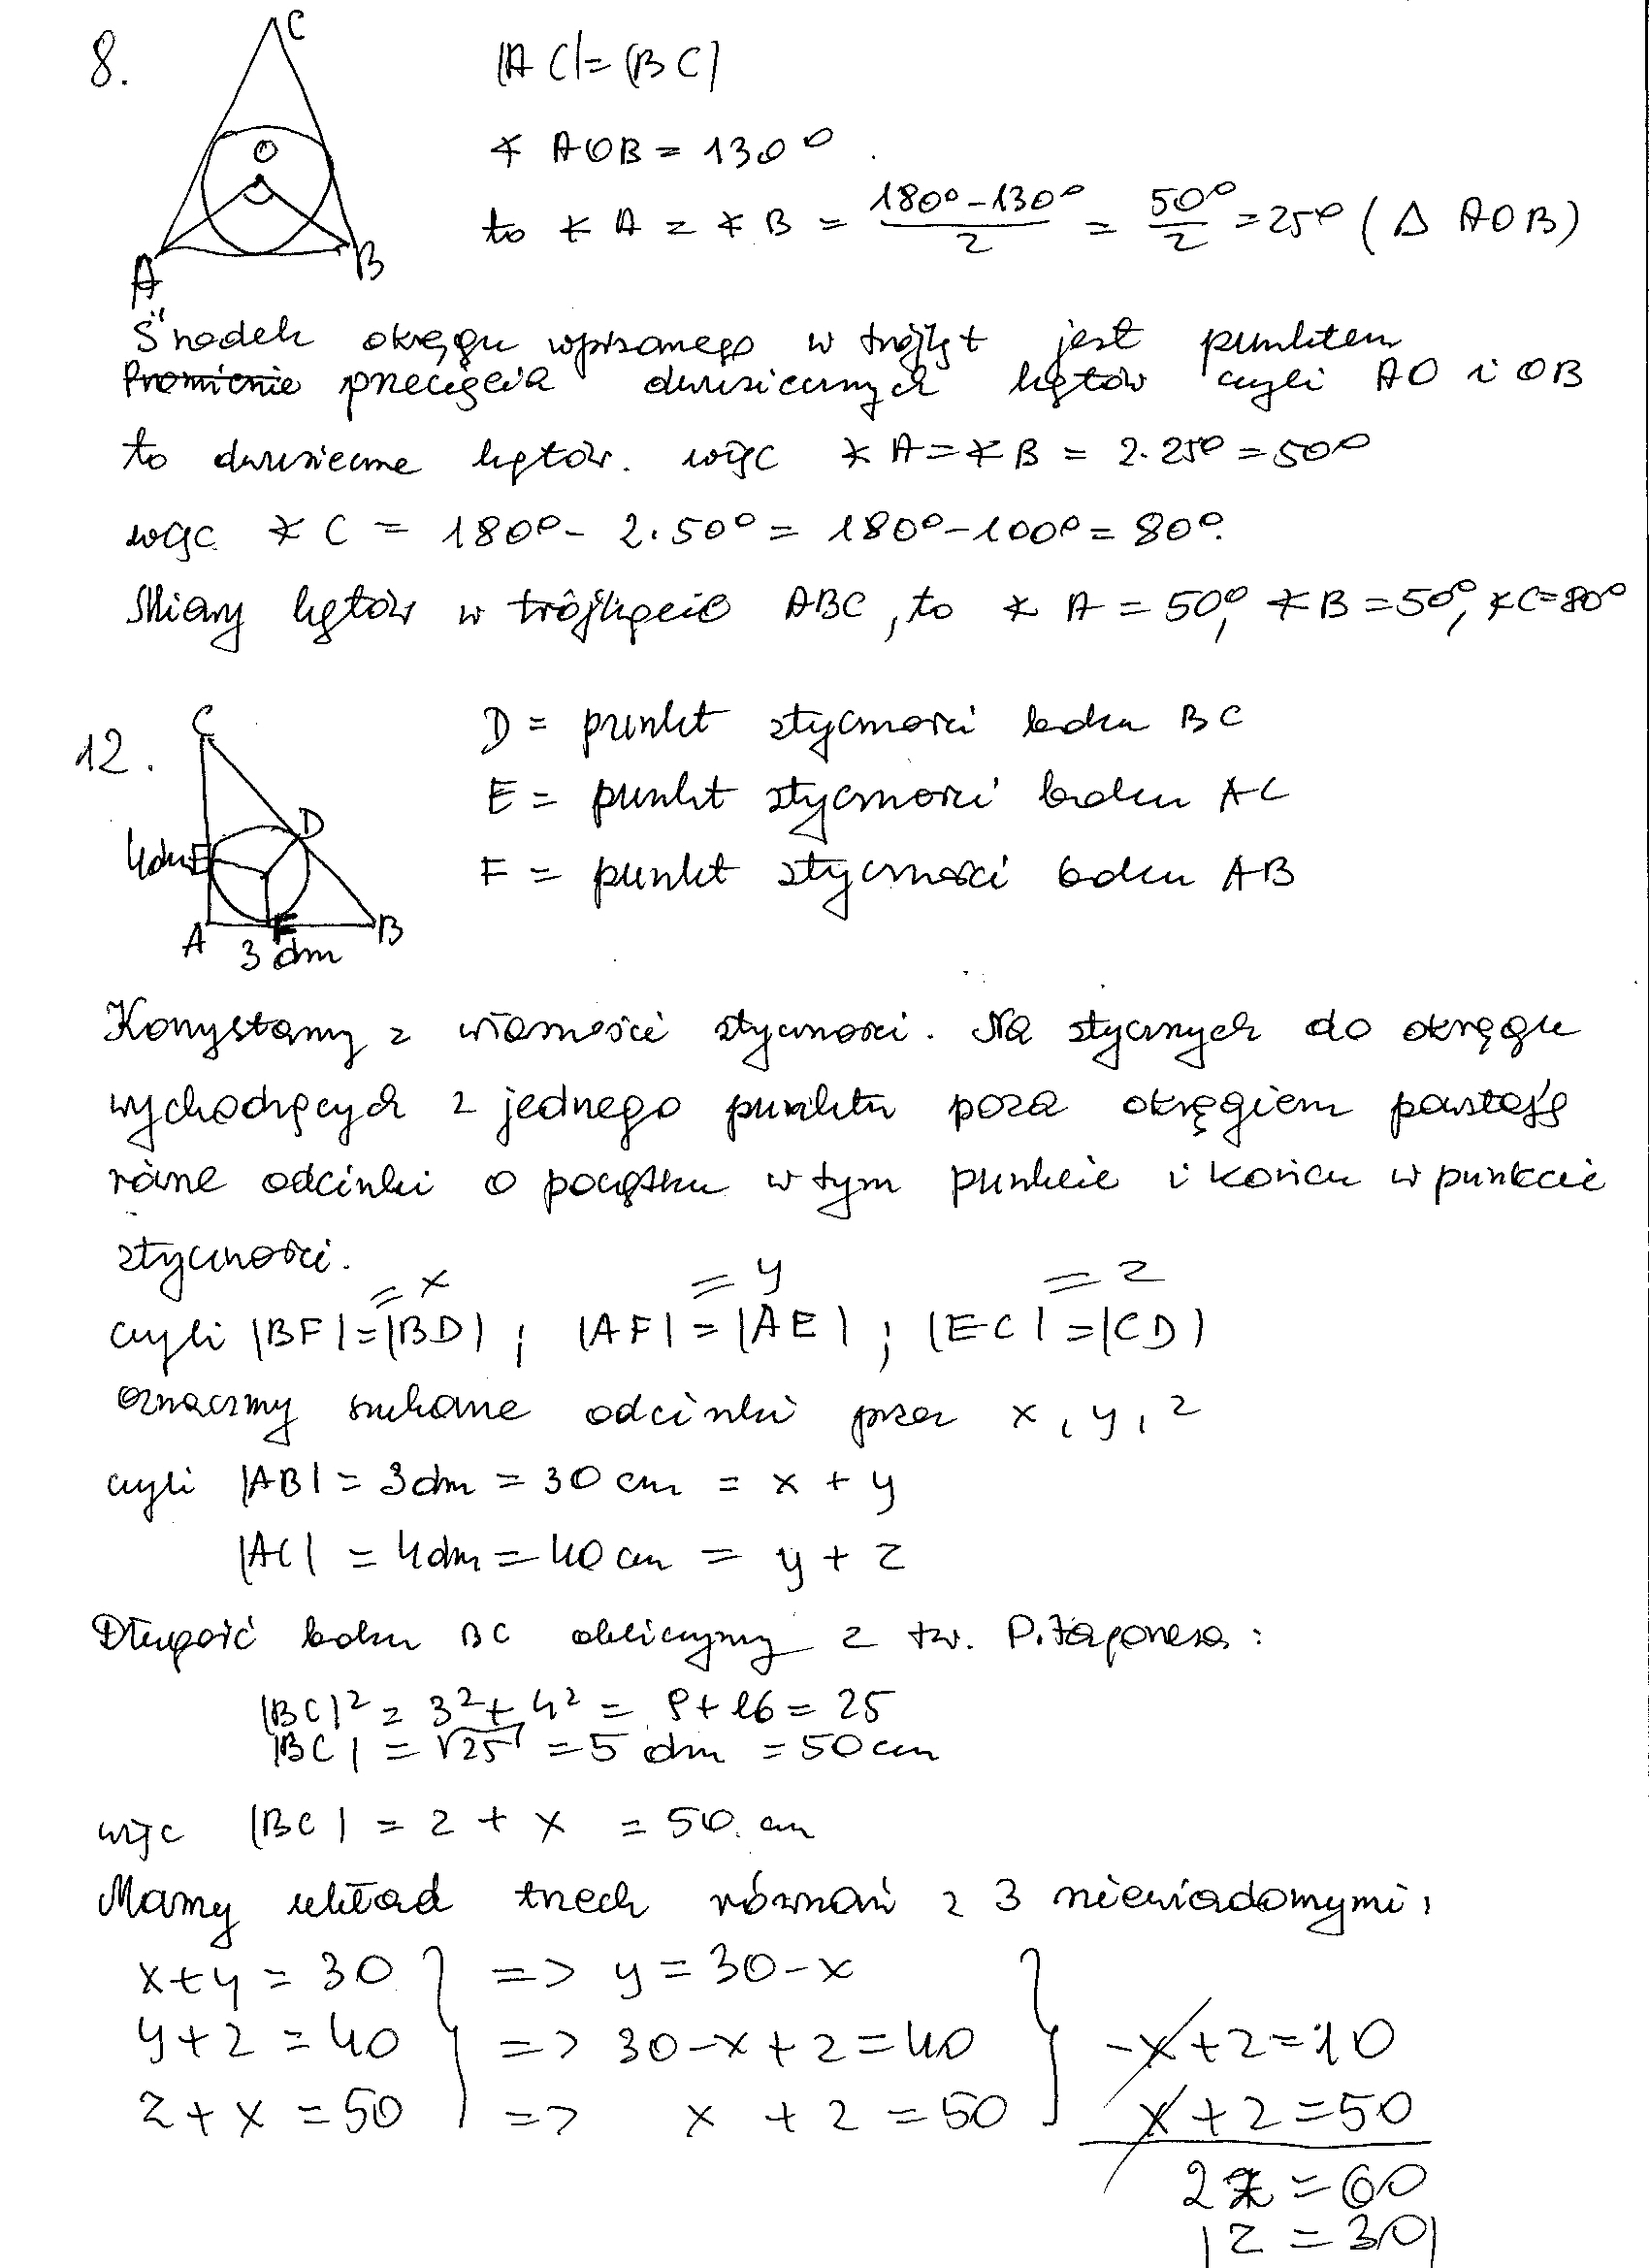 8.
C
O
A
B
|AC|=|BC|
∢ AOB = 130°
to ∢ A = ∢ B = (180°-130°)/2 = 50°/2 = 25° (Δ AOB)
Środek okręgu wpisanego w trójkąt jest punktem
Promienie przecięcia dwusiecznych kątów czyli AO i OB
to dwusieczne kątów. więc ∢ A = ∢ B = 2·25° = 50°
więc ∢ C = 180° - 2·50° = 180° - 100° = 80°.
Miary kątów w trójkącie ABC, to ∢ A = 50°, ∢ B = 50°, ∢ C = 80°
12.
C
D
4dm E
A F B
3 dm
D = punkt styczności boku BC
E = punkt styczności boku AC
F = punkt styczności boku AB
Korzystamy z własności styczności. Na stycznych do okręgu
wychodzących z jednego punktu poza okręgiem powstają
równe odcinki o początku w tym punkcie i końcu w punkcie
styczności.
= x = y = z
czyli |BF|=|BD| ; |AF|=|AE| ; |EC|=|CD|
oznaczmy szukane odcinki przez x, y, z
czyli |AB| = 3dm = 30 cm = x + y
|AC| = 4dm = 40 cm = y + z
Długość boku BC obliczymy z tw. Pitagoresa:
|BC|² = 3² + 4² = 9 + 16 = 25
|BC| = √25 = 5 dm = 50cm
więc |BC| = z + x = 50 cm
Mamy układ trzech równań z 3 niewiadomymi:
x+y = 30 } => y = 30-x }
y+z = 40 } => 30-x+z = 40 } -x+z = 10
z+x = 50 } => x + z = 50 } x+z = 50
2z = 60
|z = 30|